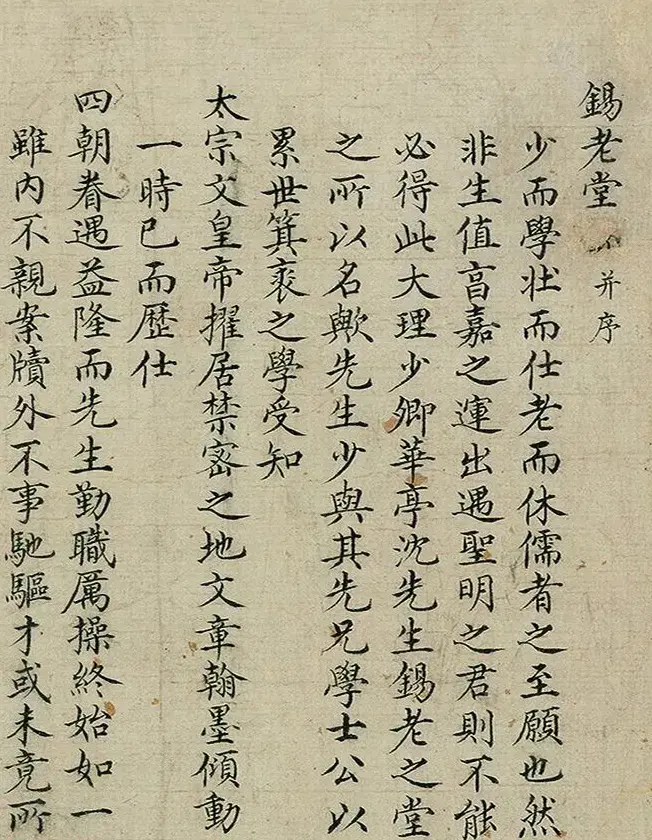 錫老堂 并序
少而學壯而仕老而休儒者之至願也然
非生值亯嘉之運出遇聖明之君則不能
必得此大理少卿華亭沈先生錫老之堂
之所以名歟先生少與其先兄學士公以
累世箕裘之學受知
太宗文皇帝擢居禁密之地文章翰墨傾動
一時已而歷仕
四朝眷遇益隆而先生勤職厲操終始如一
雖内不親案牘外不事馳驅才或未竟所